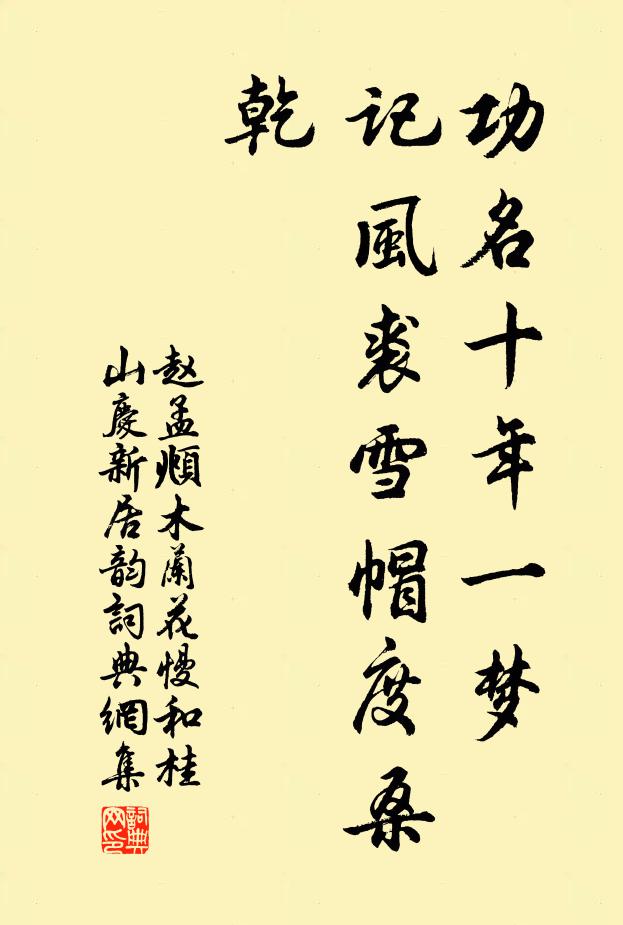 功名十年一梦
記風裘雪帽度桑
乾
赵孟頫木蘭花慢和桂
山慶新居韵詞典網集
詞典
网印